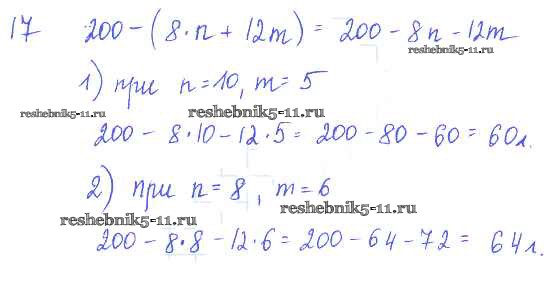 17 200 - (8·n + 12m) = 200 - 8n - 12m
reshebnik5-11.ru
1) при n = 10, m = 5
reshebnik5-11.ru
reshebnik5-11.ru
200 - 8·10 - 12·5 = 200 - 80 - 60 = 60л.
2) при n = 8, m = 6
reshebnik5-11.ru
reshebnik5-11.ru
200 - 8·8 - 12·6 = 200 - 64 - 72 = 64л.